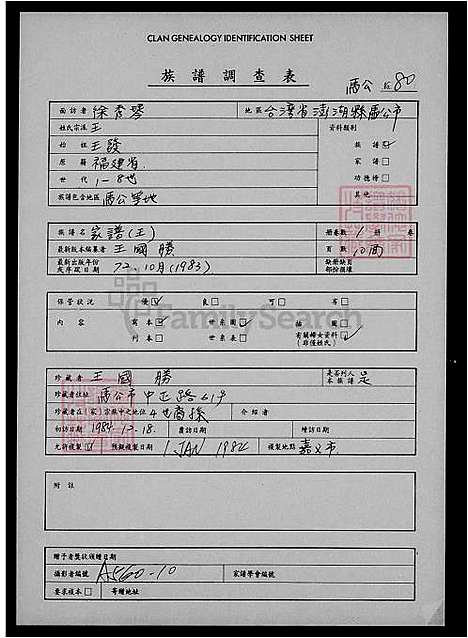 CLAN GENEALOGY IDENTIFICATION SHEET
族譜調查表
馬公 80
面訪者 徐秀琴 地區 台灣省澎湖縣馬公市
姓氏宗派 王 資料類別
始祖 王發 族譜
原籍 福建省 家譜
世代 1-8世 功德榜
族譜包含地區 馬公等地 其他
族譜名 家譜(王) 冊卷數 1 冊 卷
最新版本編纂者 王國勝 頁數 10面
最新出版年份或序跋日期 72.10月(1983) 缺冊缺頁部份損壞
保管狀況 優 良 可 劣
內容 寫本 世系圖 插圖
刊本 世系表 有關婦女資料(非僅姓氏)
FamilySearch
珍藏者 王國勝 是否列入本族譜 是
珍藏者住址 馬公市中正路61号
珍藏者在(家)宗族中之地位 4世裔孫 介紹者
初訪日期 1984.12.18. 書訪日期 續訪日期
允許複製 預擬複製日期 1 JAN 1984 複製地點 嘉义市
附註
贈予者獎狀頒贈日期
攝影者編號 A560-10 家譜學會編號
要求複本 寄贈日期